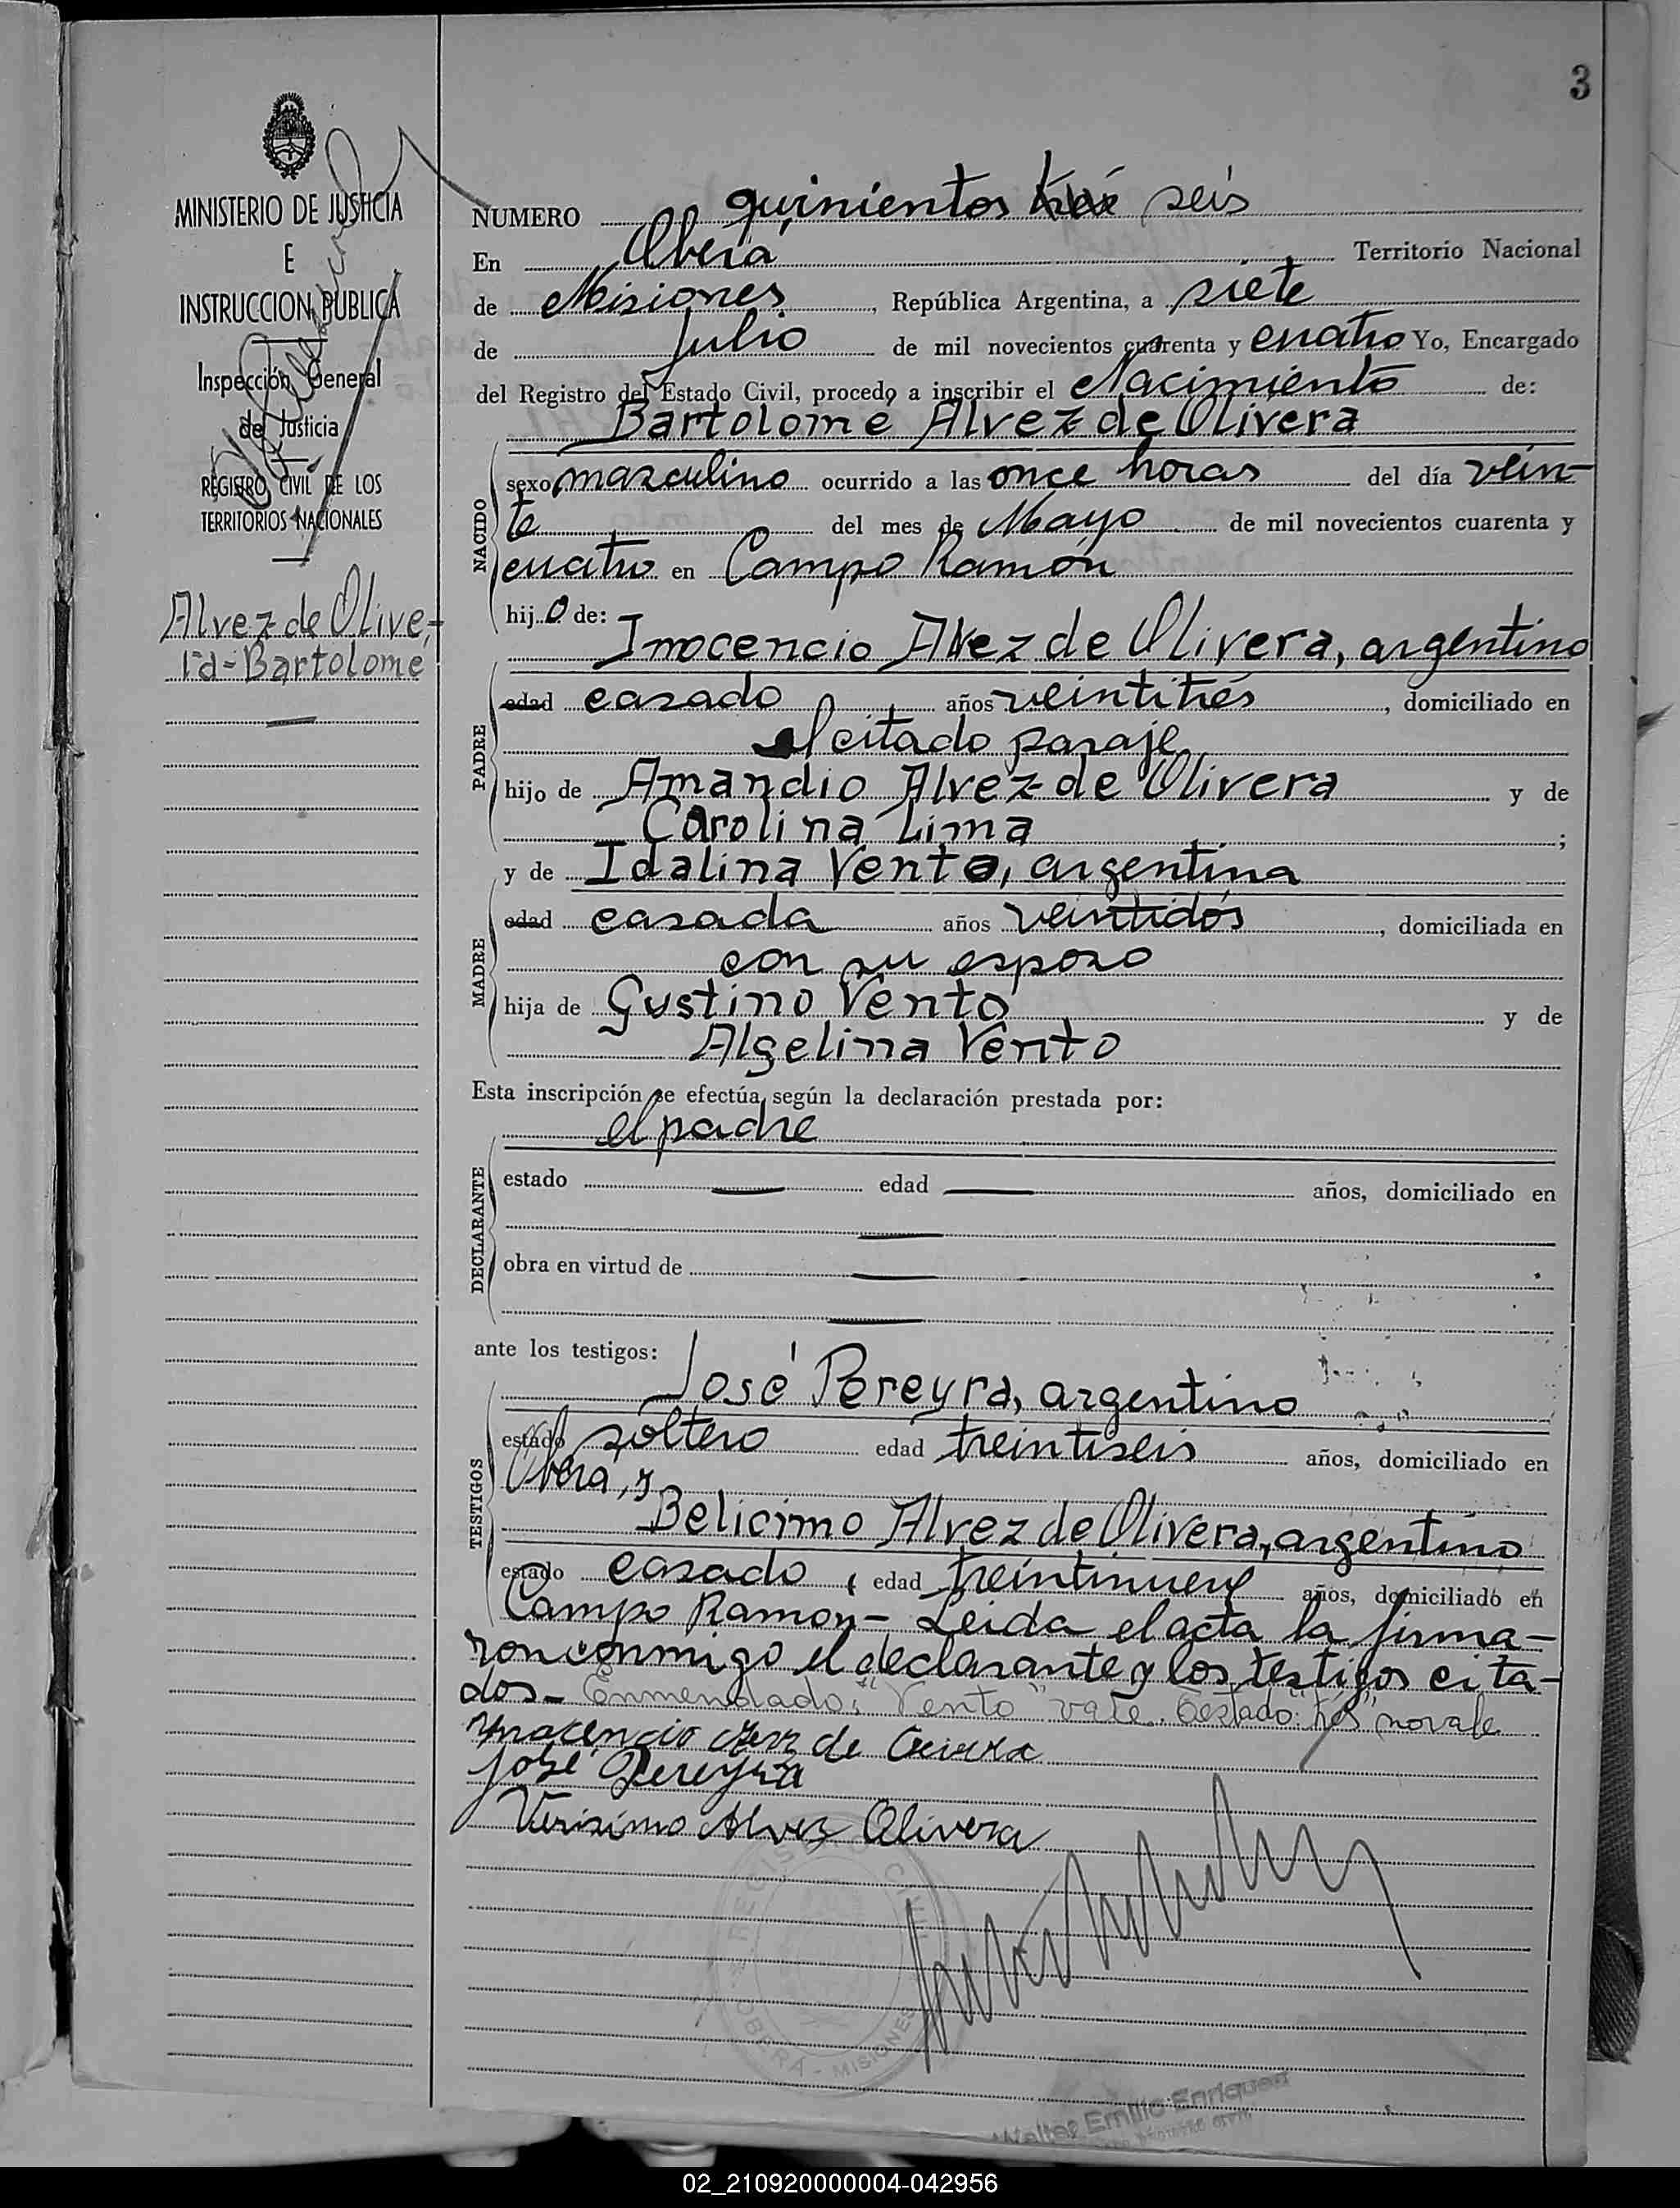 3
MINISTERIO DE JUSTICIA
E
INSTRUCCION PUBLICA
Inspección General
de Justicia
REGISTRO CIVIL DE LOS
TERRITORIOS NACIONALES
Alvez de Olive-
ra-Bartolomé
NUMERO quinientos seis
En Oberá Territorio Nacional
de Misiones, República Argentina, a siete
de Julio de mil novecientos cuarenta y cuatro Yo, Encargado
del Registro del Estado Civil, procedo a inscribir el Nacimiento de:
Bartolomé Alvez de Olivera
NACIDO
sexo masculino ocurrido a las once horas del día vein-
te del mes de Mayo de mil novecientos cuarenta y
cuatro en Campo Ramón
hijo de:
Inocencio Alvez de Olivera, argentino
PADRE
edad casado años veintitrés, domiciliado en
el citado paraje
hijo de Amandio Alvez de Olivera y de
Carolina Lima;
y de Idalina Vento, argentina
MADRE
edad casada años veintidós, domiciliada en
con su esposo
hija de Gustino Vento y de
Algelina Vento
Esta inscripción se efectúa según la declaración prestada por:
el padre
DECLARANTE
estado — edad — años, domiciliado en
—
obra en virtud de —
—
ante los testigos:
José Pereyra, argentino
TESTIGOS
estado soltero edad treintiseis años, domiciliado en
Oberá, y
Belicimo Alvez de Olivera, argentino
estado casado, edad treintinueve años, domiciliado en
Campo Ramón- Leida el acta la firma-
ron conmigo el declarante y los testigos cita-
dos- Enmendado: "Vento" vale. Testado: "tres" no vale
Inocencio de
José Pereyra
Virisimo Alvez Olivera
REGISTRO CIVIL
OBERA - MISIONES
Walter Emilio Enriquez
02_210920000004-042956